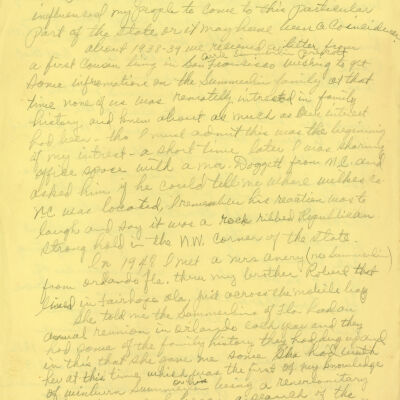 influenced my people to come to this particular
part of the State or it may have been a Coincidence.
about 1938-39 we received a letter from
a first Cousin living in San Francisco wishing to get
Some information on the Summerlin family, at that
time none of us was remotely intrested in family
history, and knew about as much as our interest
had been - tho I must admit this was the beginning
of my intrest - a short time later I was sharing
office space with a mr. Doggett from N.C. and
asked him if he could tell me where wilkes co
NC was located, I remember his reaction was to
laugh and say it was a rock ribbed Republican
strong hold in the N.W. corner of the state.
In 1948 I met a mrs avery (no Summerlin)
from orlando fla. thru my brother Robert that
lived in Fairhope ala, just across the mobile bay
She told me the Summerlins of Fla had an
annual reunion in orlando each year and they
had some of the family history they had dug up and
in this that she gave me some She had with
her at this time, which was the first of my knowledge
of winburn Summerlin being a revolutionary
a search of the